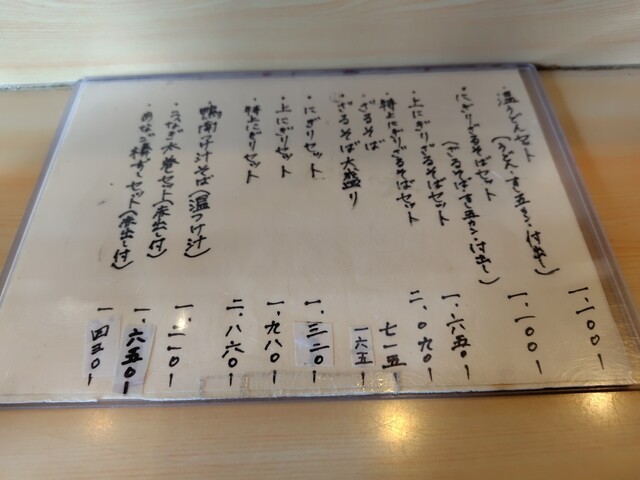 ・温うどんセット
(うどん・すし五カン・付出し)
・にぎりざるそばセット
(ざるそば・すし五カン・付出し)
・上にぎりざるそばセット
・特上にぎりざるそばセット
・ざるそば
・ざるそば大盛り
・にぎりセット
・上にぎりセット
・特上にぎりセット
鴨南け汁そば(温つけ汁)
・うなぎ太巻セット(赤出し付)
・あなご棒ずしセット(赤出し付)
一、一〇〇ー
一、一〇〇ー
一、六五〇ー
二、〇九〇ー
七一五
一六五
一、三二〇ー
一、九八〇ー
二、八六〇ー
一、二一〇ー
一、六五〇ー
一、四三〇ー